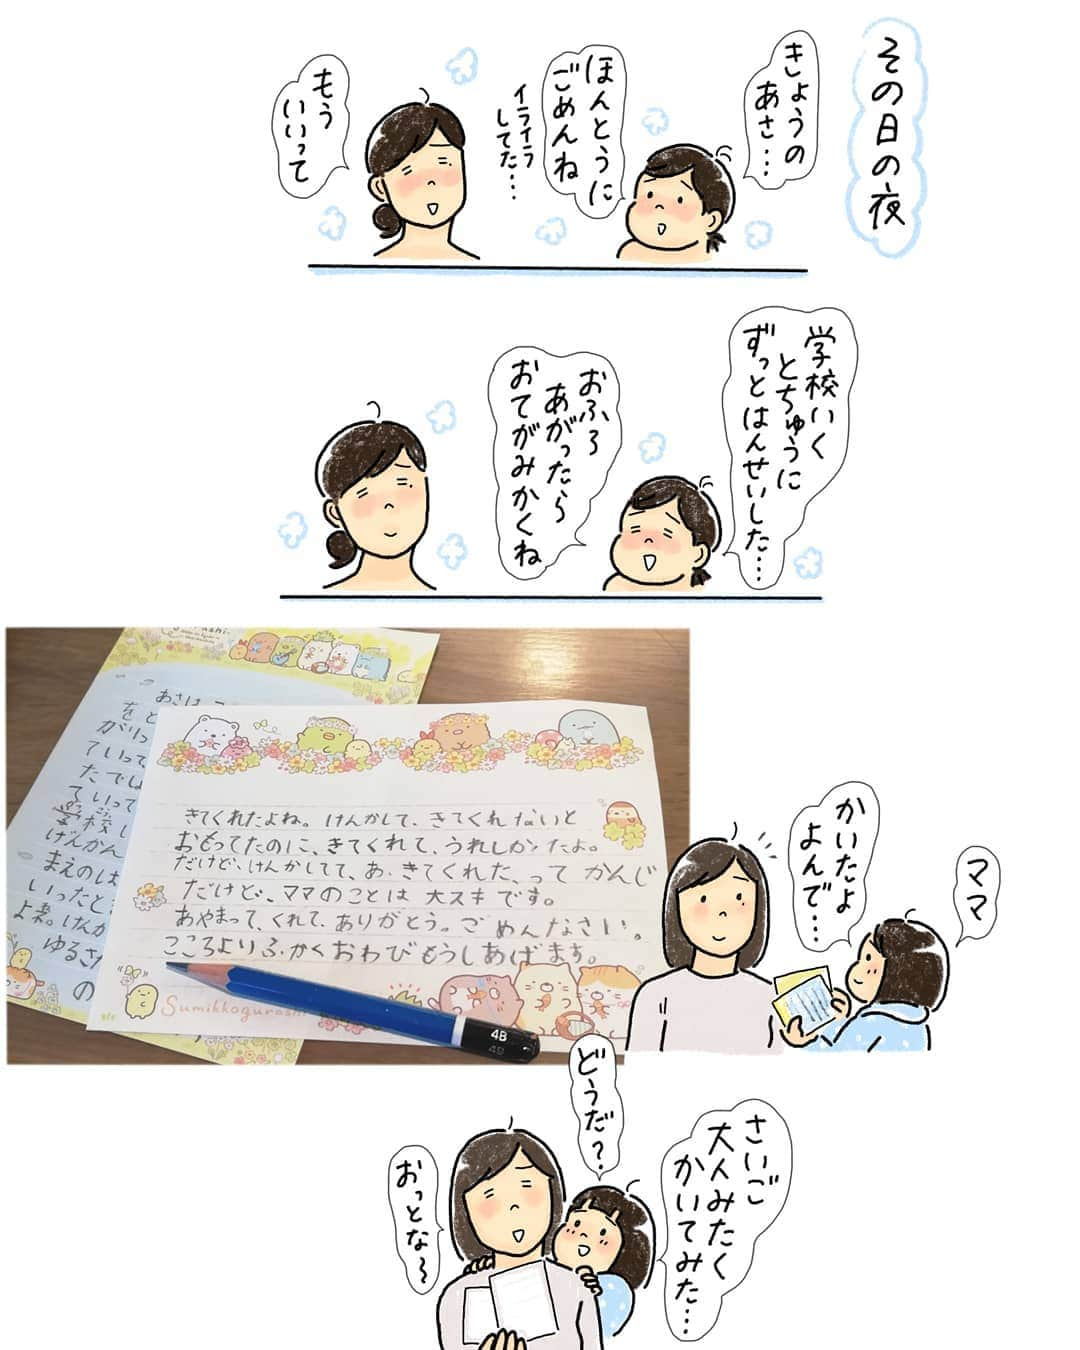 その日の夜
きょうの
あさ…
ほんとうに
ごめんね
イライラ
してた…
もう
いいって
学校いく
とちゅうに
ずっとはんせいした…
おふろ
あがったら
おてがみかくね
あさは
を
がりっ
ていって
たでは
ていって
学校
げんかん
まえのしは
いったと
けんか
ゆるさ
の
きてくれたよね。けんかして、きてくれないと
おもってたのに、きてくれて、うれしかたよ。
だけど、けんかしてて、あ、きてくれた、って かんじ
だけど、ママのことは 大スキです。
あやまって、くれて、ありがとう。ごめんなさい。
こころよりふかくおわびもうしあげます。
Sumikkogurashi
4B
ママ
かいたよ
よんで…
さいご
大人みたく
かいてみた…
どうだ?
おっとな～